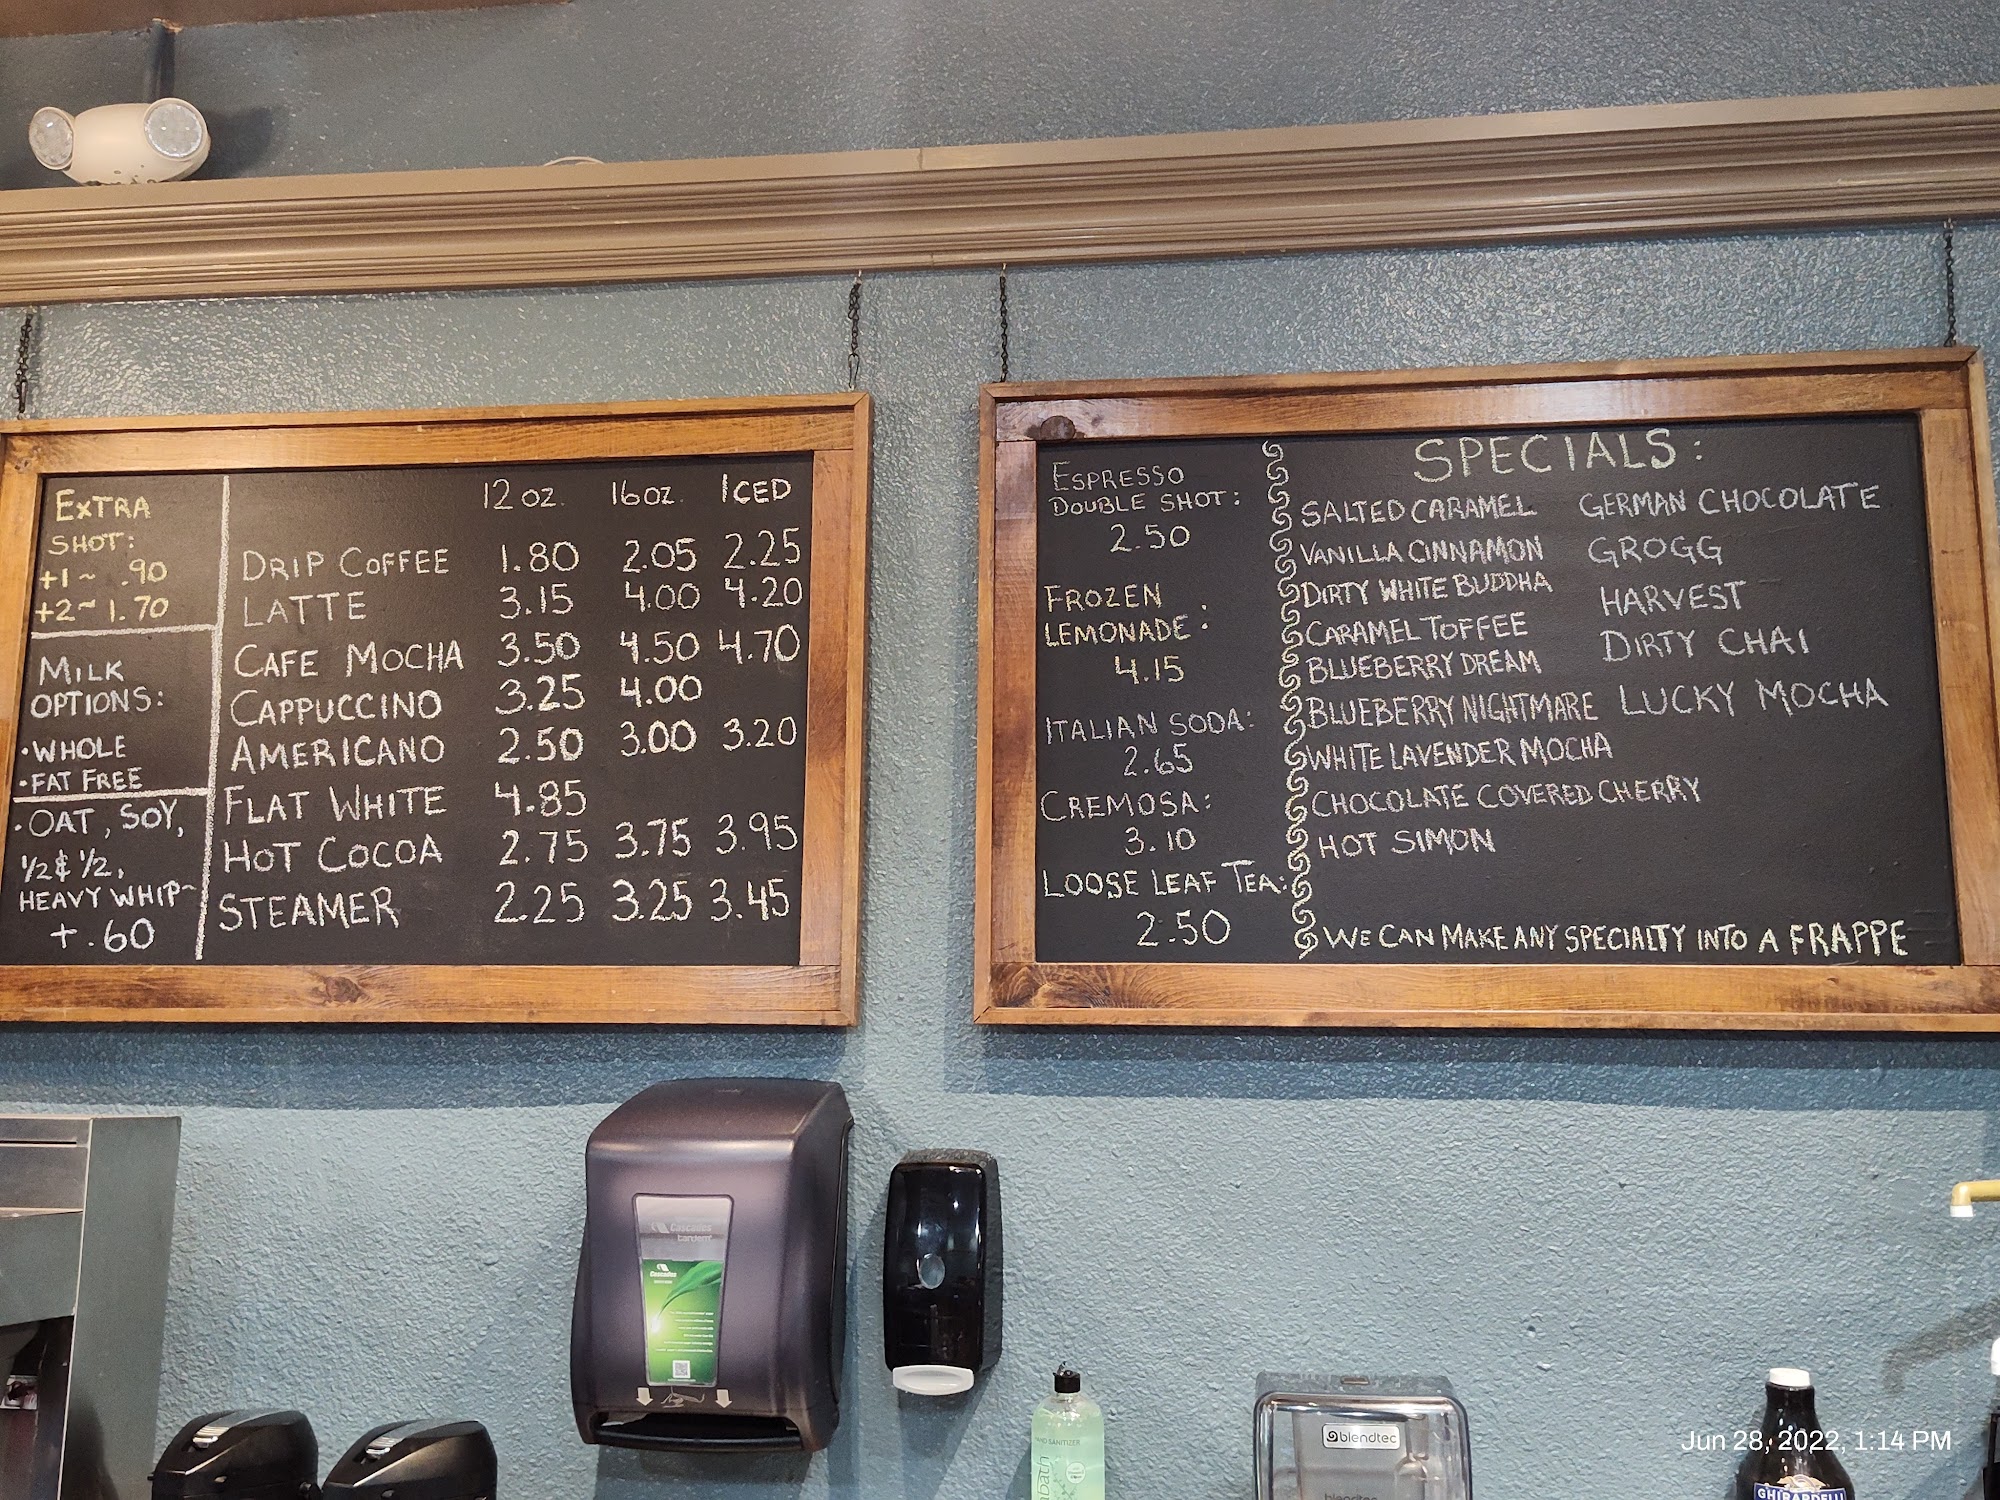 EXTRA
SHOT:
+1 ~ .90
+2 ~ 1.70
MILK
OPTIONS:
• WHOLE
• FAT FREE
• OAT, SOY,
1/2 & 1/2,
HEAVY WHIP~
+ .60
12 OZ. 16 OZ. ICED
DRIP COFFEE 1.80 2.05 2.25
LATTE 3.15 4.00 4.20
CAFE MOCHA 3.50 4.50 4.70
CAPPUCCINO 3.25 4.00
AMERICANO 2.50 3.00 3.20
FLAT WHITE 4.85
HOT COCOA 2.75 3.75 3.95
STEAMER 2.25 3.25 3.45
ESPRESSO
DOUBLE SHOT:
2.50
FROZEN
LEMONADE:
4.15
ITALIAN SODA:
2.65
CREMOSA:
3.10
LOOSE LEAF TEA:
2.50
SPECIALS:
SALTED CARAMEL
VANILLA CINNAMON
DIRTY WHITE BUDDHA
CARAMEL TOFFEE
BLUEBERRY DREAM
BLUEBERRY NIGHTMARE
WHITE LAVENDER MOCHA
CHOCOLATE COVERED CHERRY
HOT SIMON
GERMAN CHOCOLATE
GROGG
HARVEST
DIRTY CHAI
LUCKY MOCHA
WE CAN MAKE ANY SPECIALTY INTO A FRAPPE
Cascades
tandem
Cascades
HAND SANITIZER
blendtec
GHIRARDELLI
Jun 28, 2022, 1:14 PM